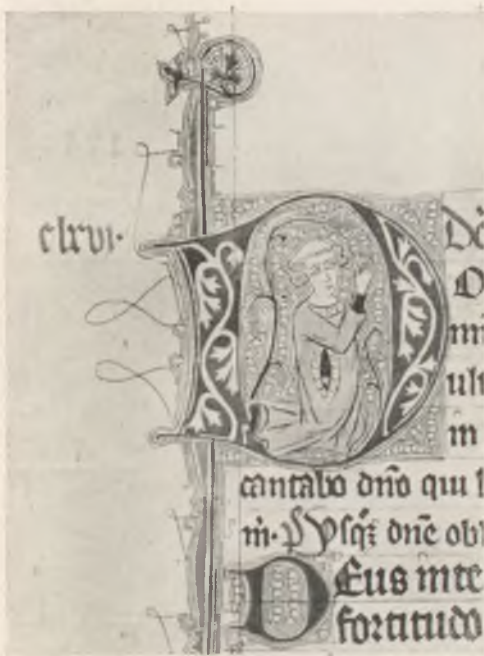 clxvi·
Dō
O
mi
ult
m
cantabo dn̄o qui
m̄· Vſq̨ dn̄e obl
DEus inte
fortitudo